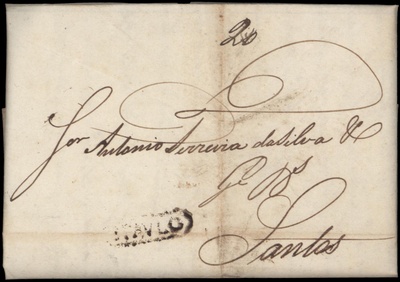 20
Snr Antonio Ferreira da Silva &
Santos
PAULO